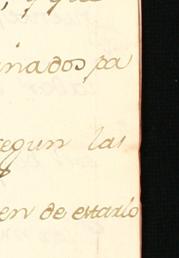 y que
inados pa
egun las
en de estarlo